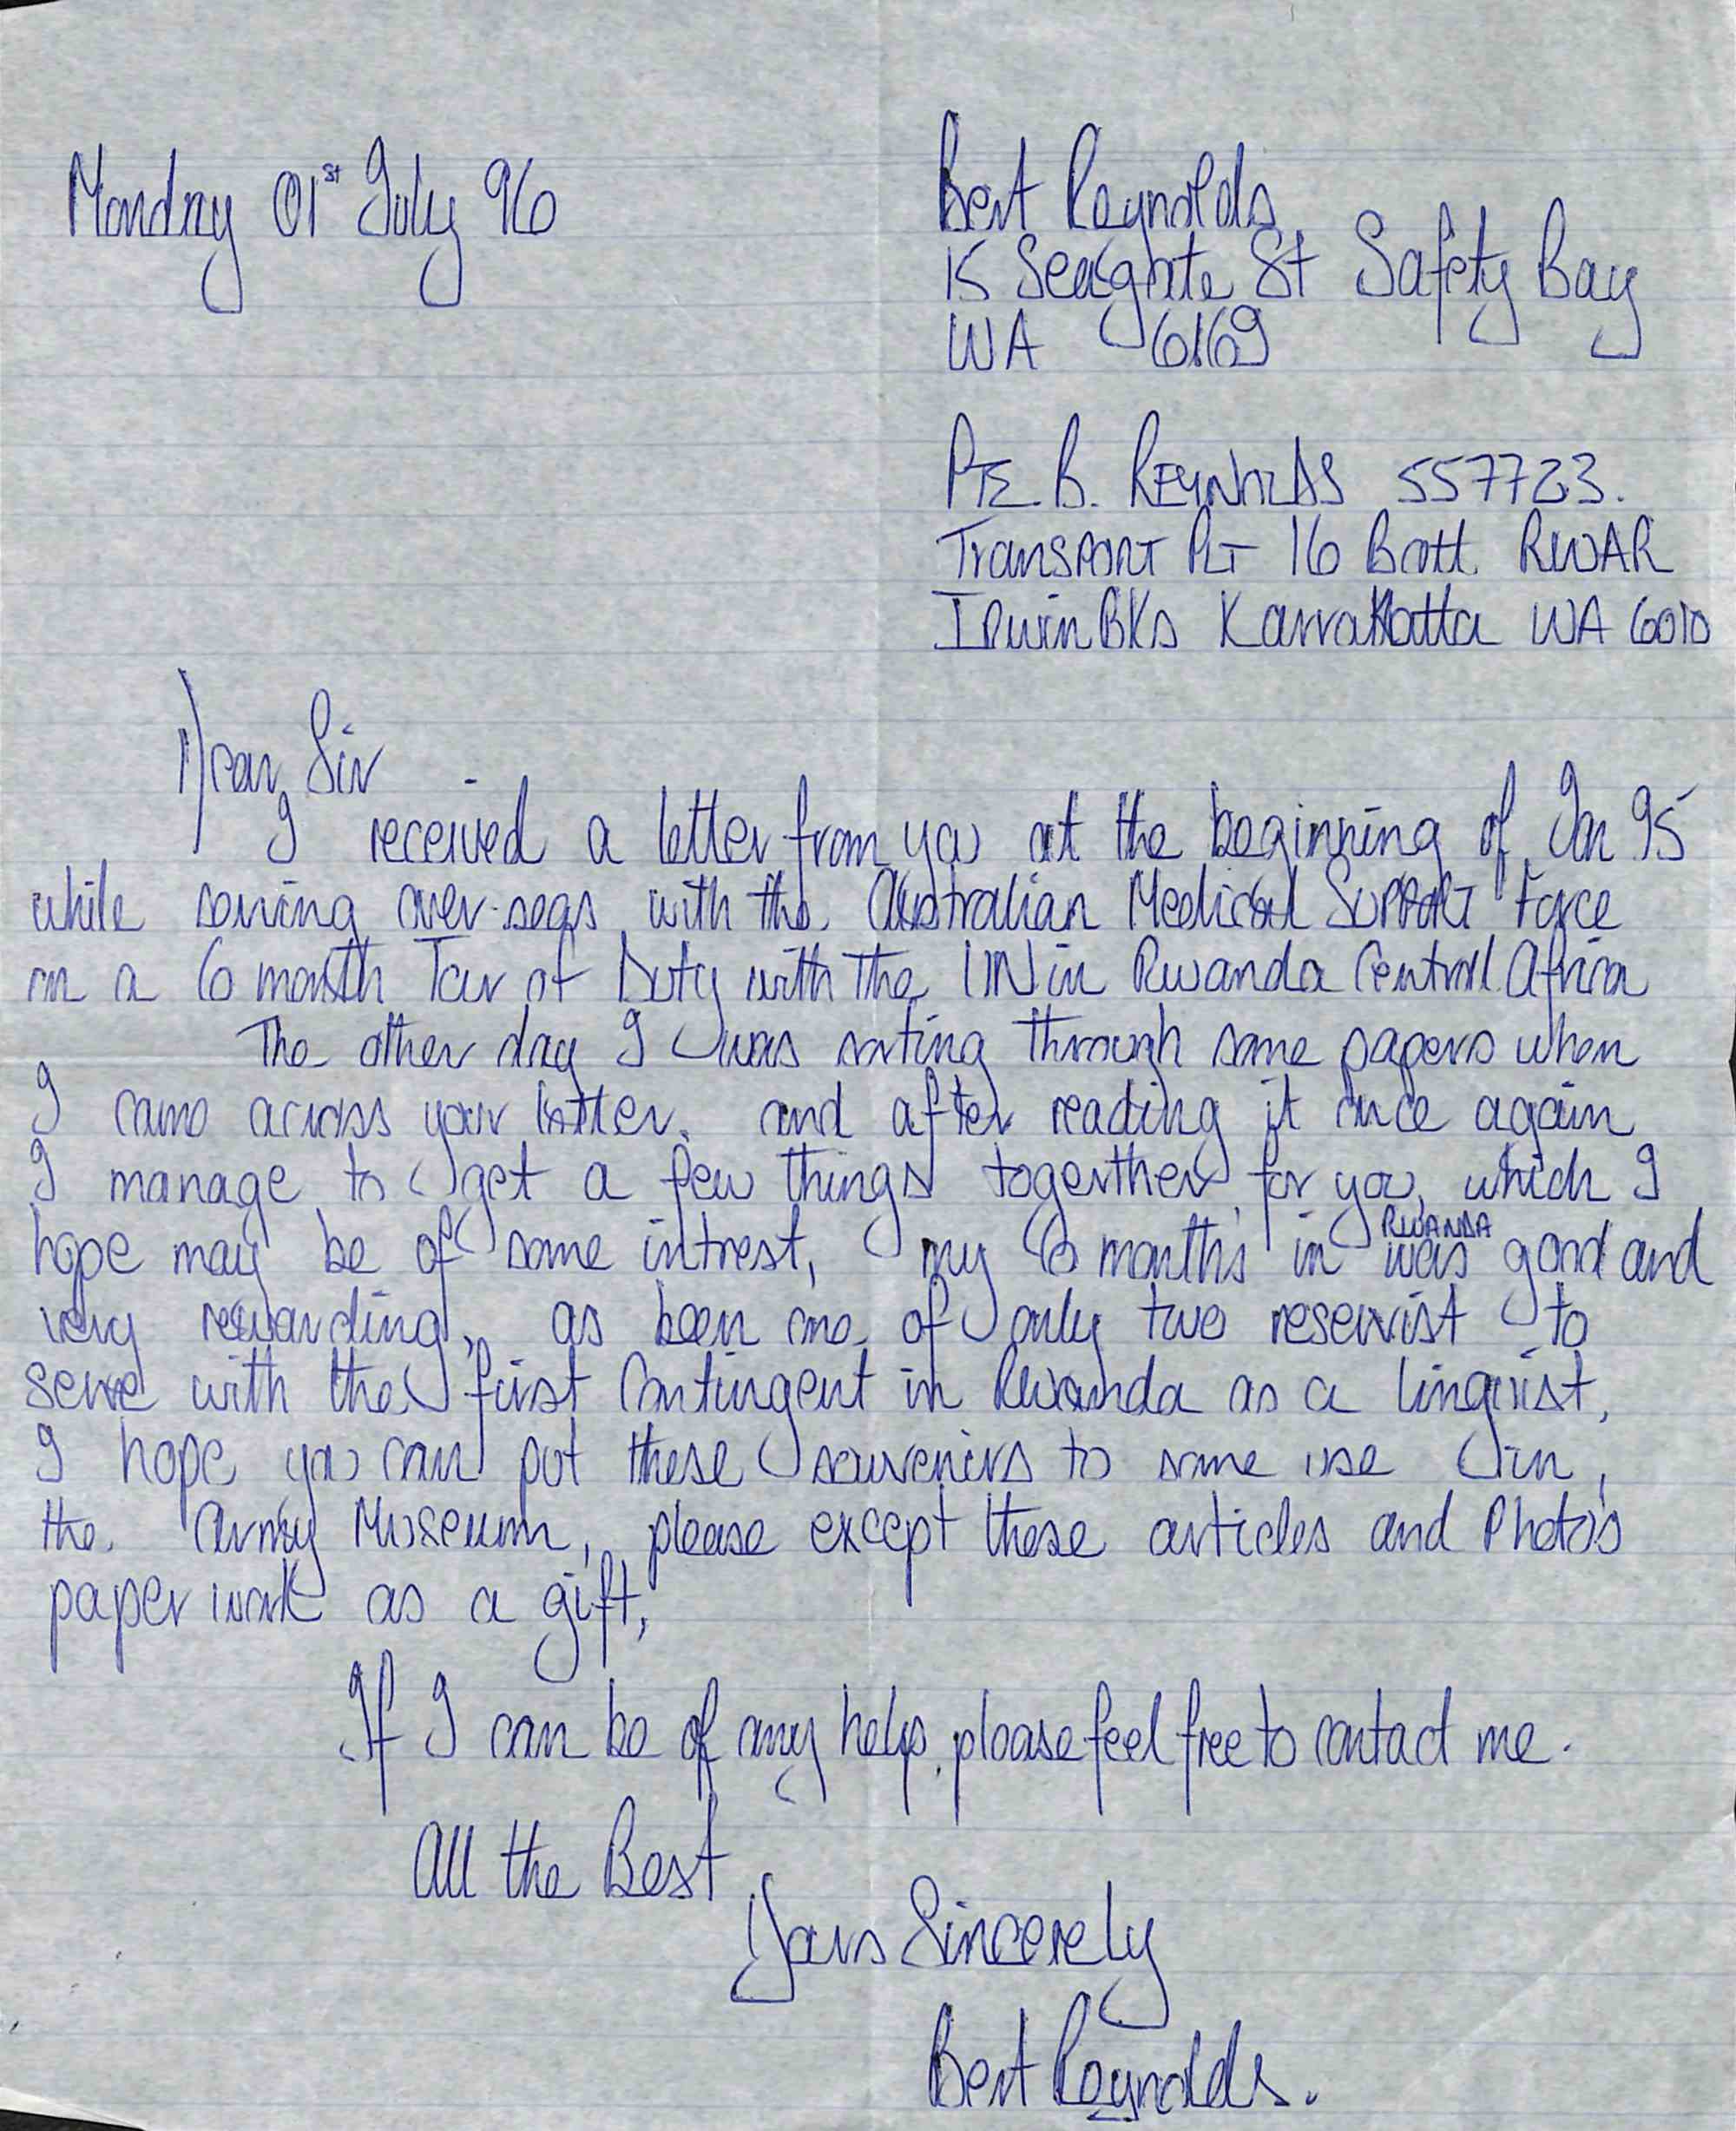 Monday 01st July 96
Bert Reynolds
15 Seagate St Safety Bay
WA 6169
PTE. B. REYNOLDS 557723.
TRANSPORT PLT 16 Batt. RWAR
Irwin BKs Karrakatta WA 6010
Dear Sir
I received a letter from you at the beginning of Jan 95
while serving over-seas with the Australian Medical SUPPORT Force
on a 6 month Tour of Duty with the UN in Rwanda Central Africa
The other day I was sorting through some papers when
I came across your letter. and after reading it once again
I manage to get a few things togerther for you, which I
hope may be of some intrest, my 6 months in RWANDA was good and
very rewarding, as been one of only two reservist to
serve with the first Contingent in Rwanda as a linguist,
I hope you can put these souveniers to some use in
the Army Museum, please except these articles and Photo's
paper work as a gift,
If I can be of any help, please feel free to contact me.
All the Best
Yours Sincerely
Bert Reynolds.